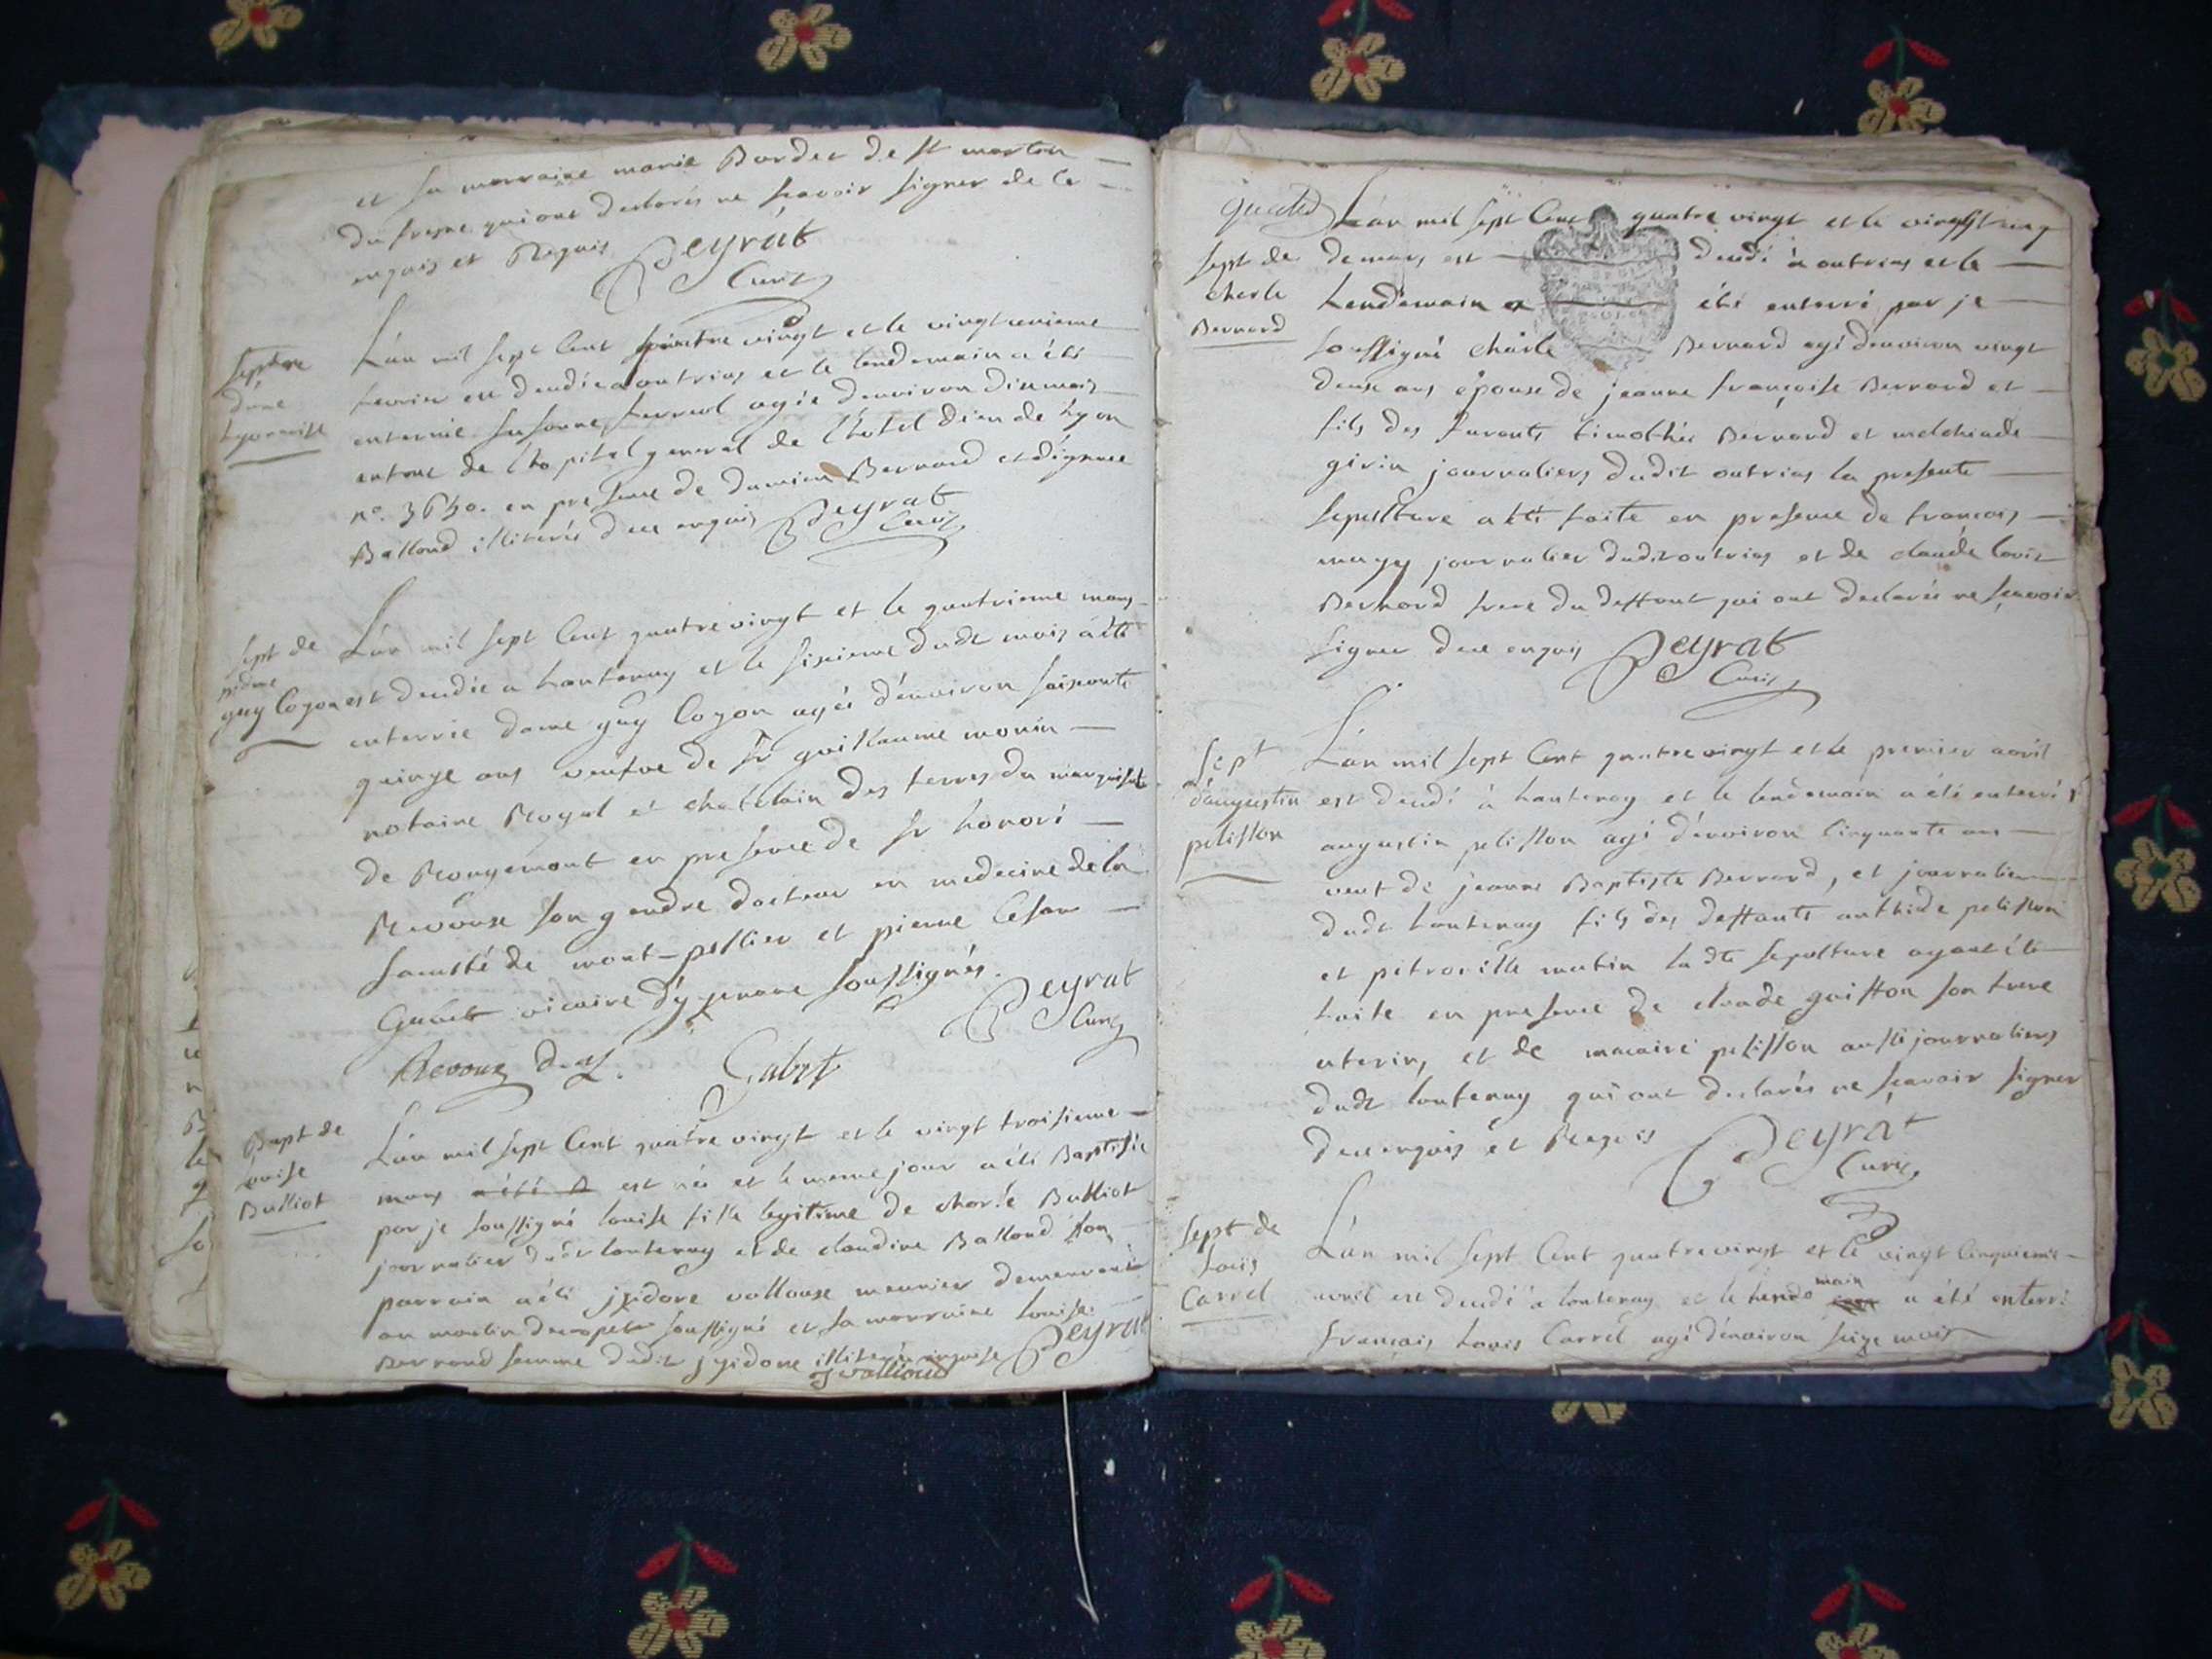 et sa marraine marie Bordet de st martin
du fresne qui ont declarés ne scavoir signer de ce
enquis et Requis Peyrat
Curé
septure
d'une
Lyonnoise
L'an mil sept Cent quatre vingt et le vingt
fevrier est decedée a outriaz et le lendemain a été
enterrée susanne agée denviron dix mois
enfant de l'hopital general de l'hotel dieu de Lyon
n°. 3630. en presence de damien Bernard et
Balland illiterés de ce enquis Peyrat
Curé
sept de
guy Cozon
L'an mil sept Cent quatre vingt et le quatrieme mars
est decedée a Lantenay et le sixieme dudt mois a été
enterrée dame guy Cozon agée d'environ soixante
quinze ans veufve de sr guillaume monin
notaire Royal et chatelain des terres du marquisat
de Rougemont en presence de sr honoré
Revoux son gendre docteur en medecine de la
faculté de mont-pellier et pierre Cesar
Gabet vicaire d'yzenave soussignés. Peyrat
Curé
Revoux Gabet
Bapt de
louise
Bulliot
L'an mil sept Cent quatre vingt et le vingt troisieme
mars a été B est née et le meme jour a été Baptisée
par je soussigné louise fille legitime de charle Bulliot
journalier dudt lantenay et de claudine Balland son
parrain a été jsidore vallouse meunier demeurant
au moulin soussigné et sa marraine louise
Bernard femme dudit jsidore illiterée enquise Peyrat
sept de
charle
Bernard
L'an mil sept Cent quatre vingt et le vingt cinq
de mars est decedé à outriaz et le
Lendemain a été enterré par je
soussigné charle Bernard agé denviron vingt
deux ans epoux de jeanne françoise Bernard et
fils des furents timothée Bernard et melchiade
girin journaliers dudit outriaz la presente
sepulture a été faite en presence de françois
mugy journalier dudit outriaz et de claude louis
Bernard frere du deffunt qui ont declarés ne scavoir
signer de ce enquis Peyrat
Curé
sept
d'augustin
pelisson
L'an mil sept Cent quatre vingt et le premier avril
est decedé à Lantenay et le lendemain a été enterré
augustin pelisson agé d'environ Cinquante ans
veuf de jeanne Baptiste Bernard, et journalier
dudt Lantenay fils des deffunts anthide pelisson
et pétronille mutin ladte sepulture ayant été
faite en presence de claude guiffon son frere
uterin, et de macaire pelisson aussi journaliers
dudt lantenay qui ont declarés ne scavoir signer
de ce enquis et Requis Peyrat
Curé
sept de
Louis
Carrel
L'an mil sept Cent quatre vingt et le vingt Cinquieme
avril est decedé a lantenay et le lendemain a été enterré
françois Louis Carrel agé d'environ seize mois